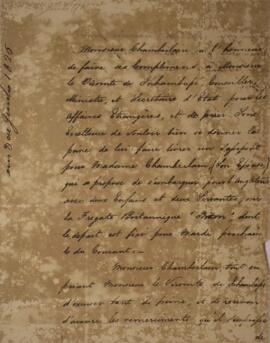 Monsieur Chamberlain a l'honneur
de faire ses Complimens à Monsieur
le Vicomte de Inhambupe, Conseiller
Ministre, et Secretaire d'Etat pour les
Affaires Etrangeres, et de prier Son
Excellence de vouloir bien se donner la
peine de lui faire livrer un Passeport
pour Madame Chamberlain (Son Epouse)
qui se propose de s'embarquer pour l'Angleterre
avec deux Enfans et deux Servantes, sur
la Fregate Britannique dont
le depart est fixé pour Mardi prochain
le du Courant
Monsieur Chamberlain tout en
priant Monsieur le Vicomte de Inhambupe
d'excuser tant de peine, et de recevoir
d'avance les remercimens qu'il
de